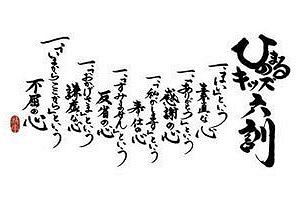 ひのまる
キッズ六訓
一、「はい」という
素直な心
一、「ありがとう」という
感謝の心
一、「私がします」という
奉仕の心
一、「すみません」という
反省の心
一、「おかげさま」という
謙虚な心
一、「負けじ」という
不屈の心